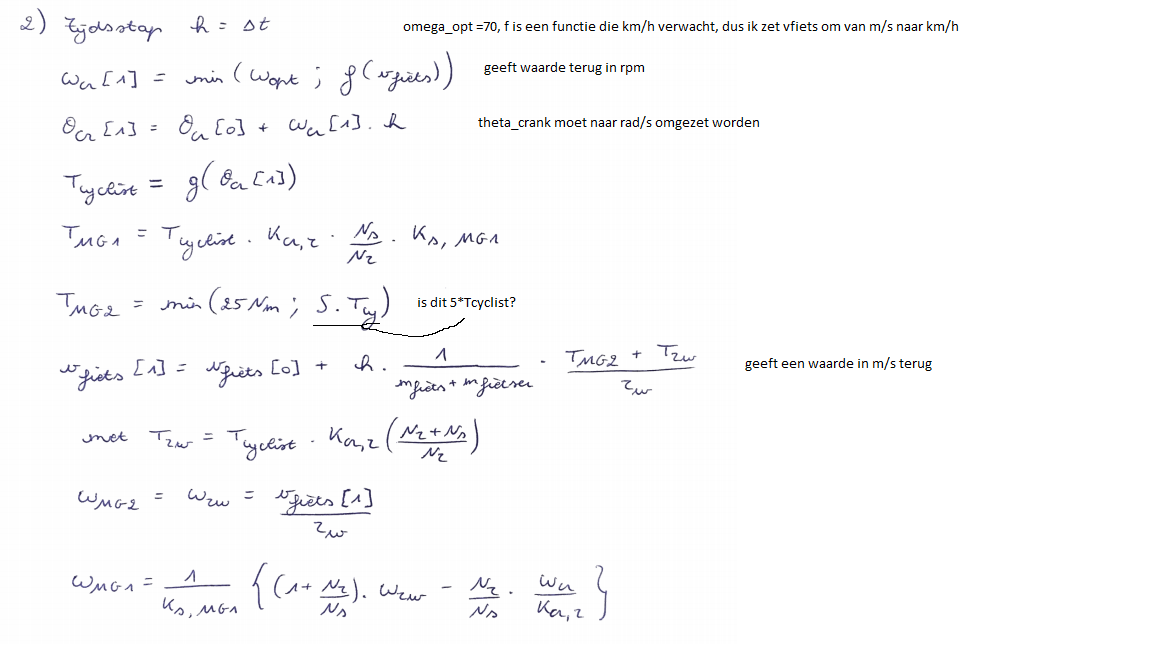 2) tijdsstap h = Δt
omega_opt =70, f is een functie die km/h verwacht, dus ik zet vfiets om van m/s naar km/h
ω_cr [1] = min (ω_opt ; f(v_fiets))
geeft waarde terug in rpm
θ_cr [1] = θ_cr [0] + ω_cr [1] . h
theta_crank moet naar rad/s omgezet worden
T_cyclist = g(θ_cr [1])
T_MG1 = T_cyclist . K_cr,r . N_s/N_r . K_s,MG1
T_MG2 = min (25Nm ; 5 . T_cy)
is dit 5*Tcyclist?
v_fiets [1] = v_fiets [0] + h . 1/(m_fiets + m_fietser) . (T_MG2 + T_rw)/r_w
geeft een waarde in m/s terug
met T_rw = T_cyclist . K_cr,r ((N_r + N_s)/N_r)
ω_MG2 = ω_rw = v_fiets [1]/r_w
ω_MG1 = 1/K_s,MG1 { (1 + N_r/N_s) . ω_rw - N_r/N_s . ω_cr/K_cr,r }